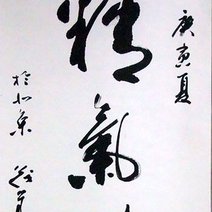 庚寅夏
精氣
於北京